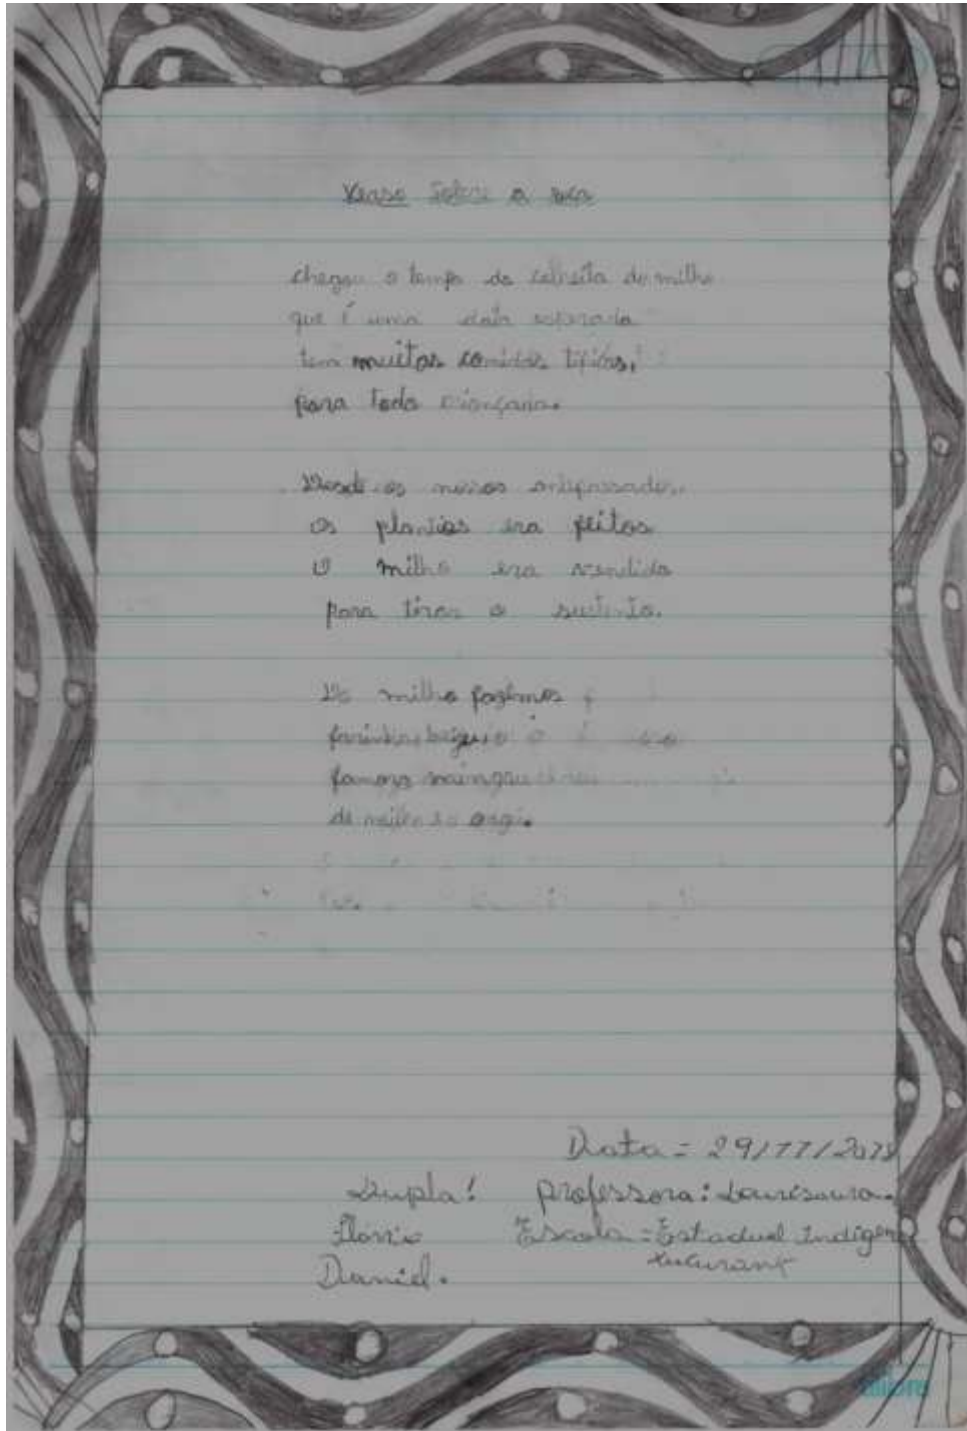 Verso Sobre a roça
chegou o tempo da colheita do milho
que é uma data esperada
tem muitas comidas tipicas,
para toda criançada.
Desde os nossos antepassados.
Os plantios era feitos
O milho era vendido
para tirar o sustento.
Do milho fazemos
farinha, beiju o
famoso mingau
de milho
Data = 29/11/2018
Dupla! professora:
Escola = Estadual Indigena
Daniel. xucurank